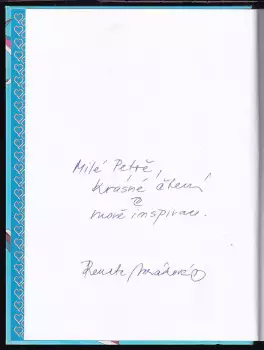 Milé Petře,
krásné čtení
a
nové inspirace.
Renata